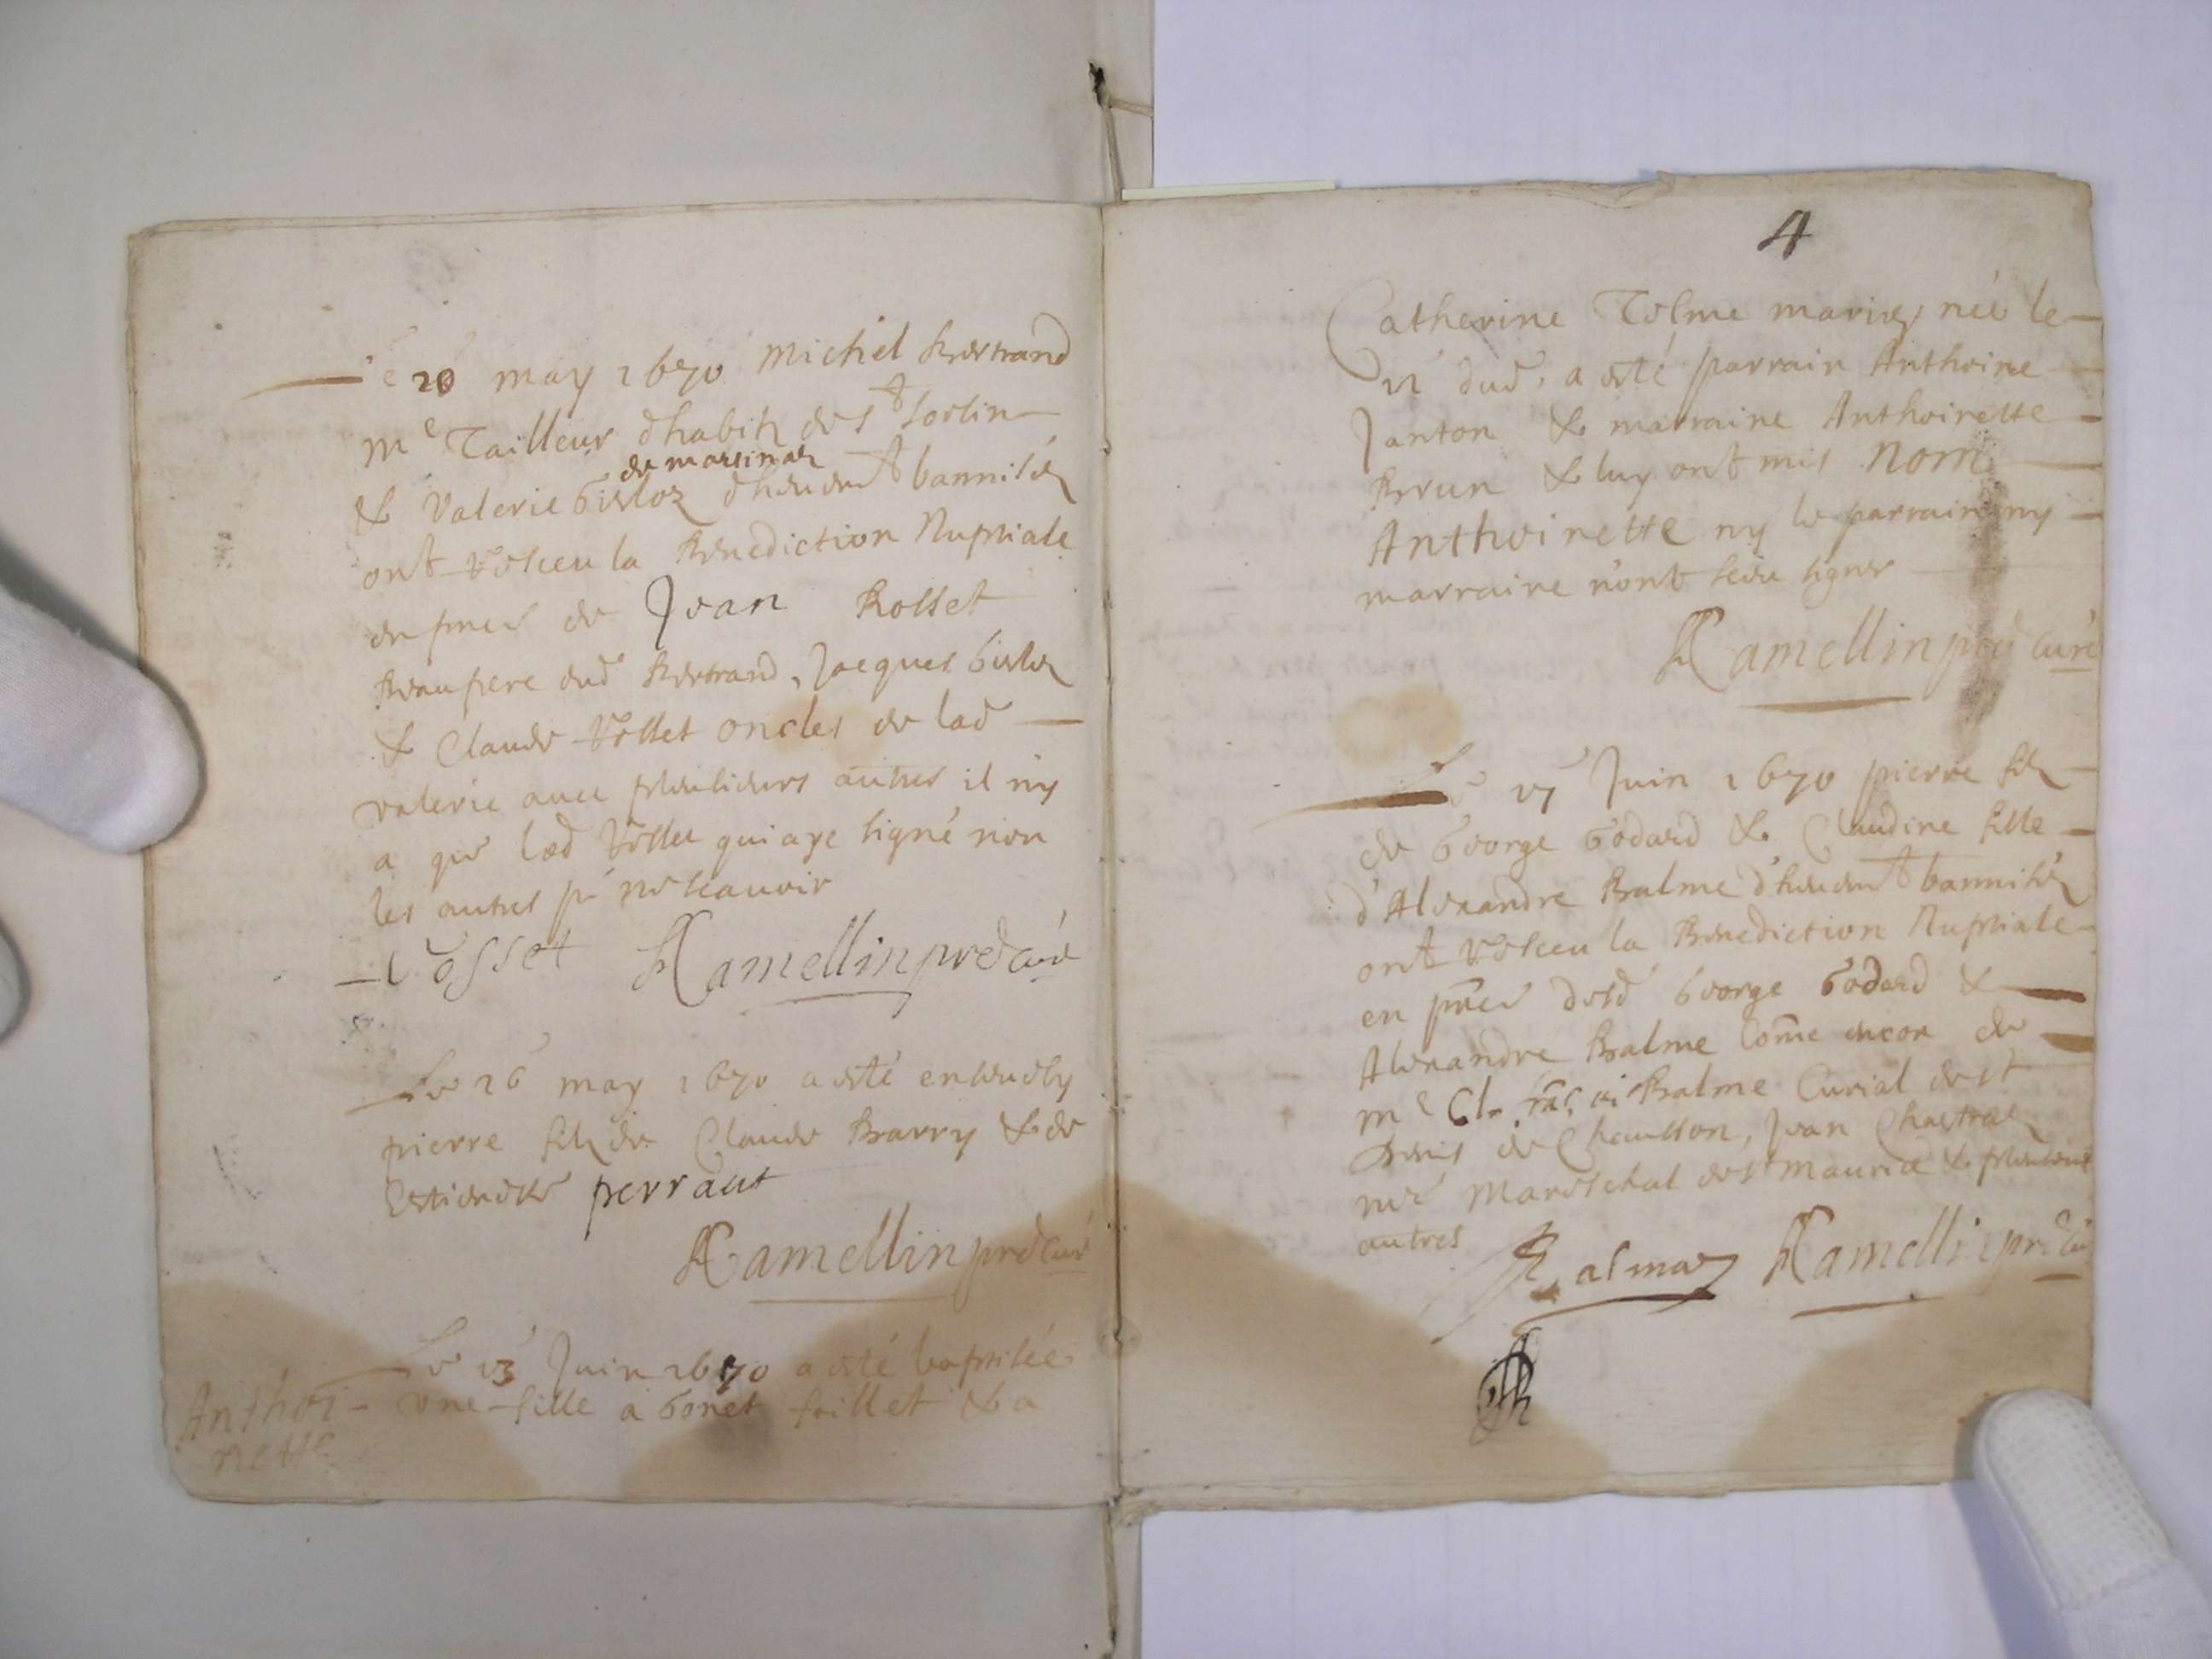 Le 20 may 1670 Michel Bertrand
me Tailleur dhabitz de St Sorlin
de marsinaz
& Valerie Girloz dheuemt bannisez
ont Receu la Benediction Nuptiale
en pnce de Jean Rosset
Beaupere dud Bertrand, Jacques Girloz
& Claude Vosset oncles de lad
valerie auec pleusieurs autres il ny
a que led Vosset qui aye signé non
les autres pr ne scauoir
Vosset Hamellin pred curé
Le 26 may 1670 a esté enseuely
pierre filz de Claude Barry & de
Estiennette perraut
Hamellin pred curé
Le 13 Juin 1670 a esté baptisée
Anthoi- une fille a Gonet faillet & a
nette
4
Catherine Tolme mariez née le
12 dud, a esté parrain Anthoine
Janton & marraine Anthoinette
Brun & luy ont mis Nom
Anthoinette ny le parrain ny
marraine n'ont sceu signer
Hamellin pred curé
Le 17 Juin 1670 pierre filz
de George Godard & Claudine fille
d'Alexandre Balme d'heuemt bannisez
ont Receu la Benediction Nuptiale
en pnce desd George Godard &
Alexandre Balme Come encor de
me Cl. frãc. Balme Curial de St
Denis de Chausson, Jean Chastraz
me Mareschal de St Maurice & pleusieurs
autres
Balmaz Hamellin pred cu